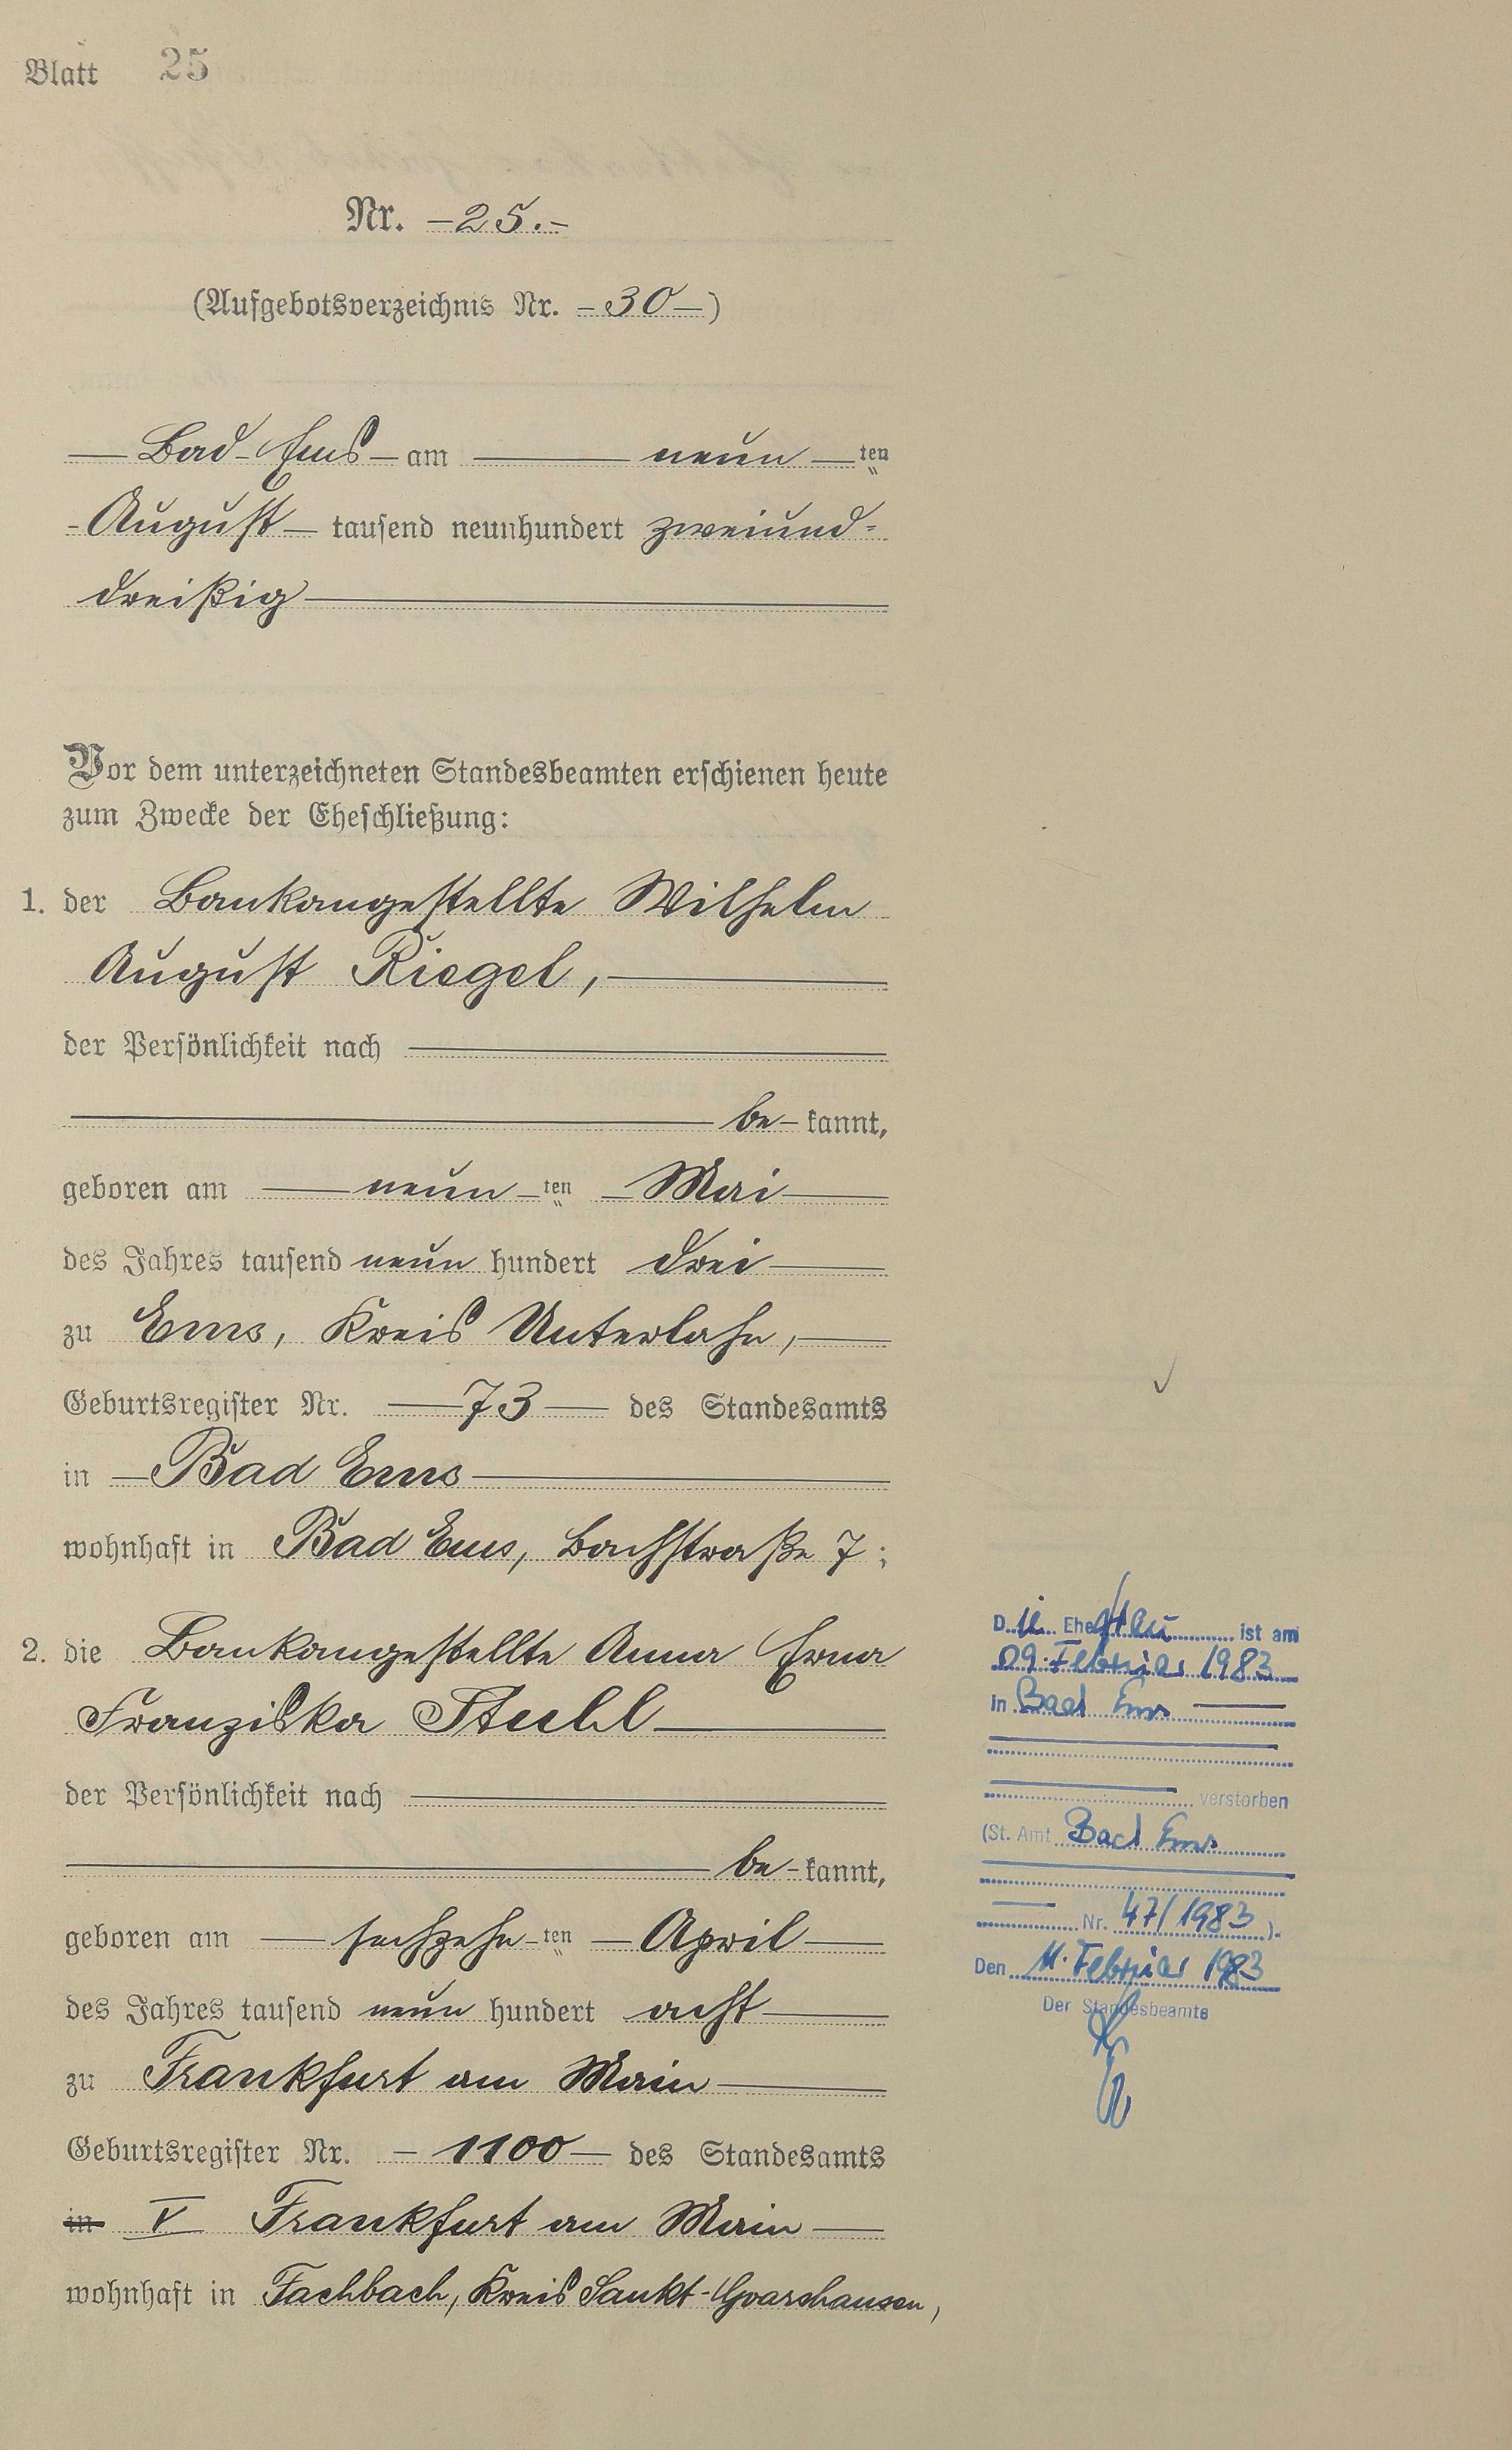 Blatt 25
Nr. -25.-
(Aufgebotsverzeichnis Nr. -30-)
Bad-Ems - am neun ten
-August- tausend neunhundert zweiund=
dreißig
Vor dem unterzeichneten Standesbeamten erschienen heute
zum Zwecke der Eheschließung:
1. der Bankangestellte Wilhelm
August Riegel,
der Persönlichkeit nach
be- kannt,
geboren am neun ten Mai
des Jahres tausend neun hundert drei
zu Ems, Kreis Unterlahn,
Geburtsregister Nr. 73 des Standesamts
in Bad Ems
wohnhaft in Bad Ems, Bachstraße 7;
2. die Bankangestellte Anna Erna
Franziska Stuhl
der Persönlichkeit nach
be- kannt,
geboren am sechzehn ten April
des Jahres tausend neun hundert acht
zu Frankfurt am Main
Geburtsregister Nr. -1100- des Standesamts
in V Frankfurt am Main
wohnhaft in Fachbach, Kreis Sankt-Goarshausen,
Die Ehefrau ist am
09. Februar 1983
in Bad Ems
verstorben
(St. Amt Bad Ems
Nr. 47/1983).
Den 11. Februar 1983
Der Standesbeamte